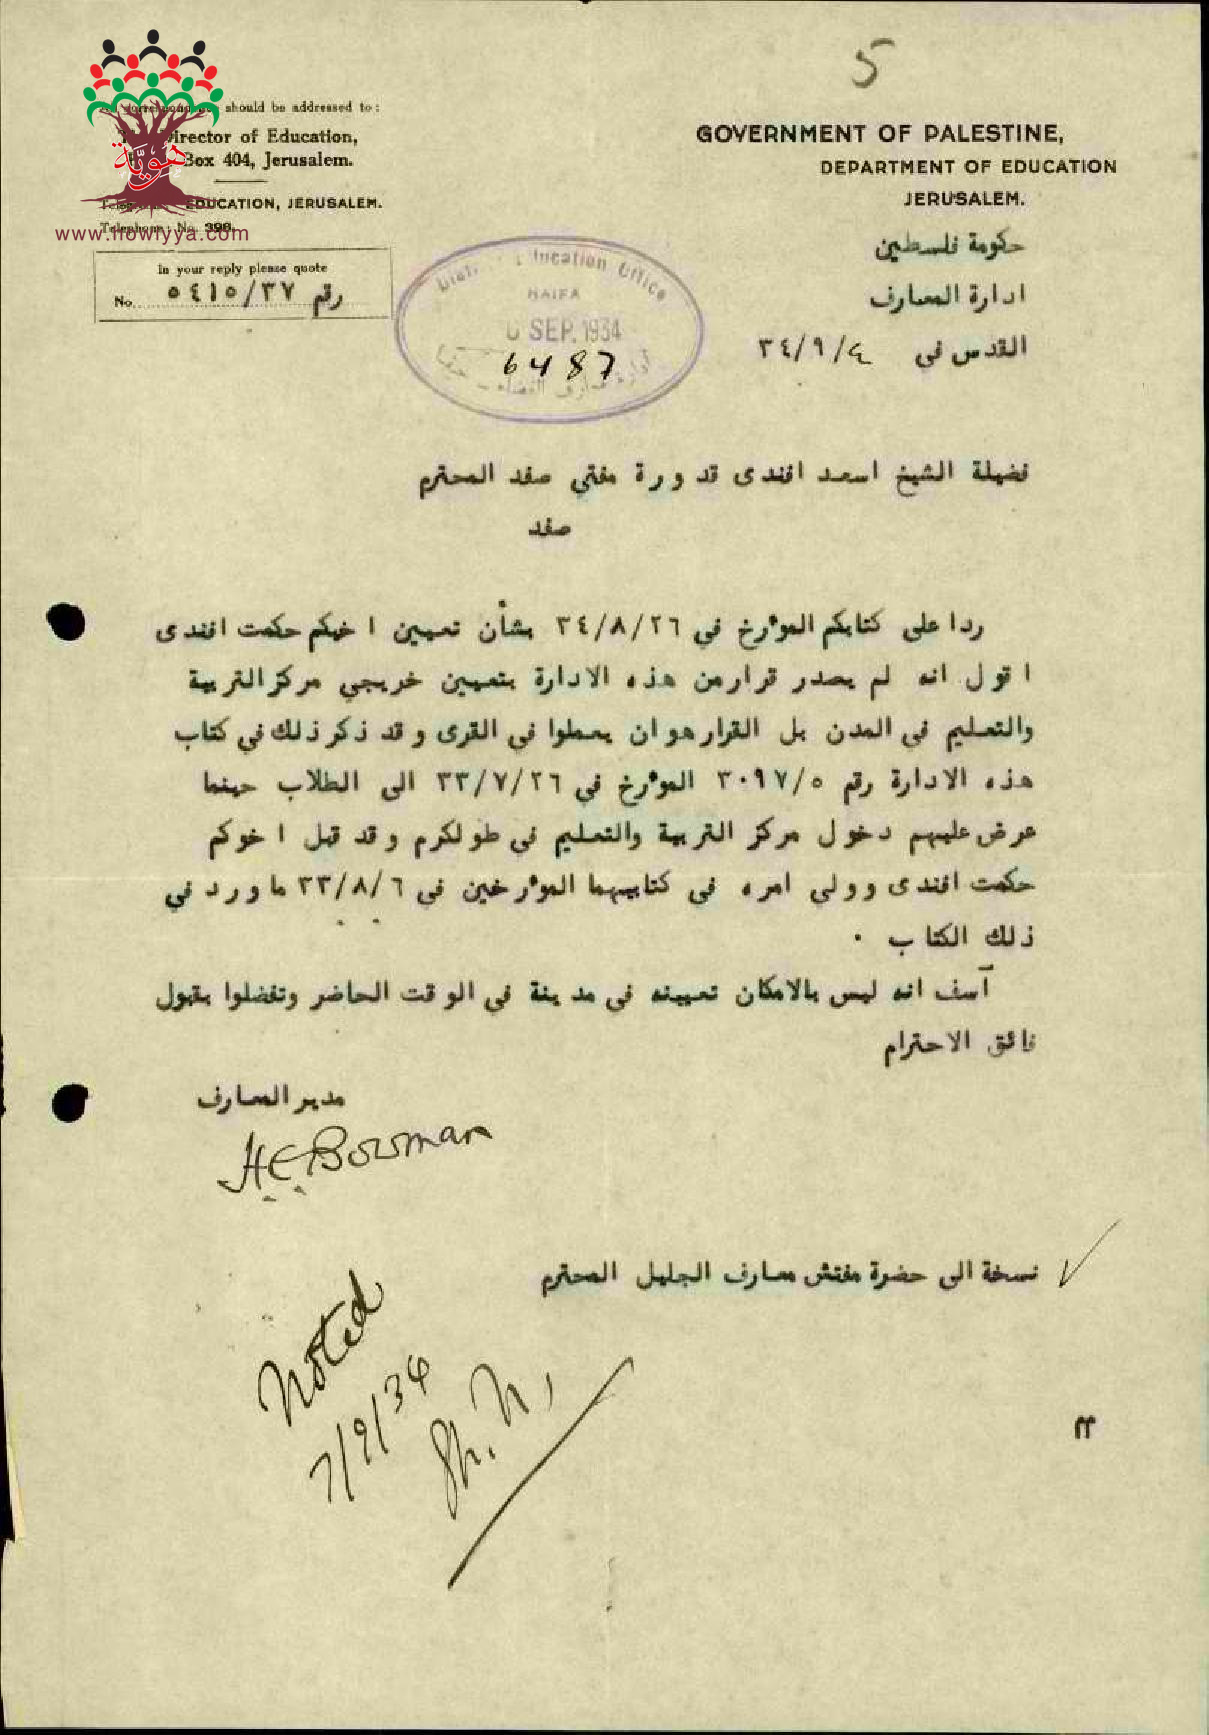 5
should be addressed to:
Director of Education,
Box 404, Jerusalem.
EDUCATION, JERUSALEM.
Telephone: No. 390.
هوية
www.howiyya.com
In your reply please quote
No. رقم ٥٤١٥/٣٧
GOVERNMENT OF PALESTINE,
DEPARTMENT OF EDUCATION
JERUSALEM.
حكومة فلسطين
ادارة المعارف
القدس في ٣٤/٩/٤
Education Office
HAIFA
SEP. 1934
6487
فضيلة الشيخ اسعد افندى قدورة مفتي صفد المحترم
صفد
ردا على كتابكم المؤرخ في ٣٤/٨/٢٦ بشأن تعيين اخيكم حكمت افندى
اقول انه لم يصدر قرار من هذه الادارة بتعيين خريجي مركز التربية
والتعليم في المدن بل القرار هو ان يعملوا في القرى وقد ذكر ذلك في كتاب
هذه الادارة رقم ٣٠٩٧/٥ المؤرخ في ٣٣/٧/٢٦ الى الطلاب حينما
عرض عليهم دخول مركز التربية والتعليم في طولكرم وقد قبل اخوكم
حكمت افندى وولي امره في كتابيهما المؤرخين في ٣٣/٨/٦ ما ورد في
ذلك الكتاب .
آسف انه ليس بالامكان تعيينه في مدينة في الوقت الحاضر وتفضلوا بقبول
فائق الاحترام
مدير المعارف
H E Bowman
نسخة الى حضرة مفتش معارف الجليل المحترم
Noted
7/9/34
Sh. N.